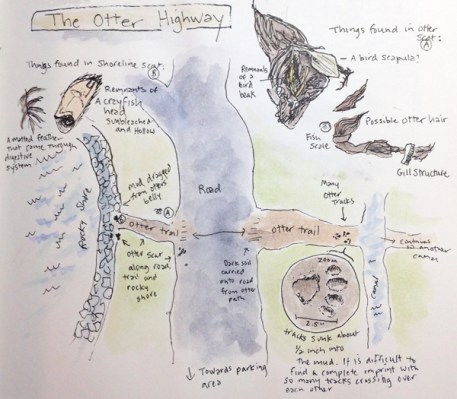 The Otter Highway
Things found in Otter
Scat: A
A bird scapula?
Remnants of
a bird
beak
Possible otter hair
Fish
Scale
Gill Structure
Things found in Shoreline scat: B
Remnants of
A creyfish
head
sunbleached
and Hollow
A matted feather
that came through
digestive
system
Rocky Shore
Mud dragged
from otters
belly
A
B
otter trail
Road
otter trail
Many
Otter
Tracks
continues
to another
canal
canal
otter scat
along road,
trail and
rocky
shore
Dark soil
carried
onto road
from otter
path
zoom
2.5"
tracks sunk about
1/2 inch into
the mud. It is difficult to
find a complete imprint with
so many tracks crossing over
each other
↓ Towards parking
area